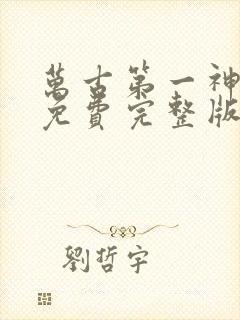 萬古第一神
免費完整版
劉哲宇